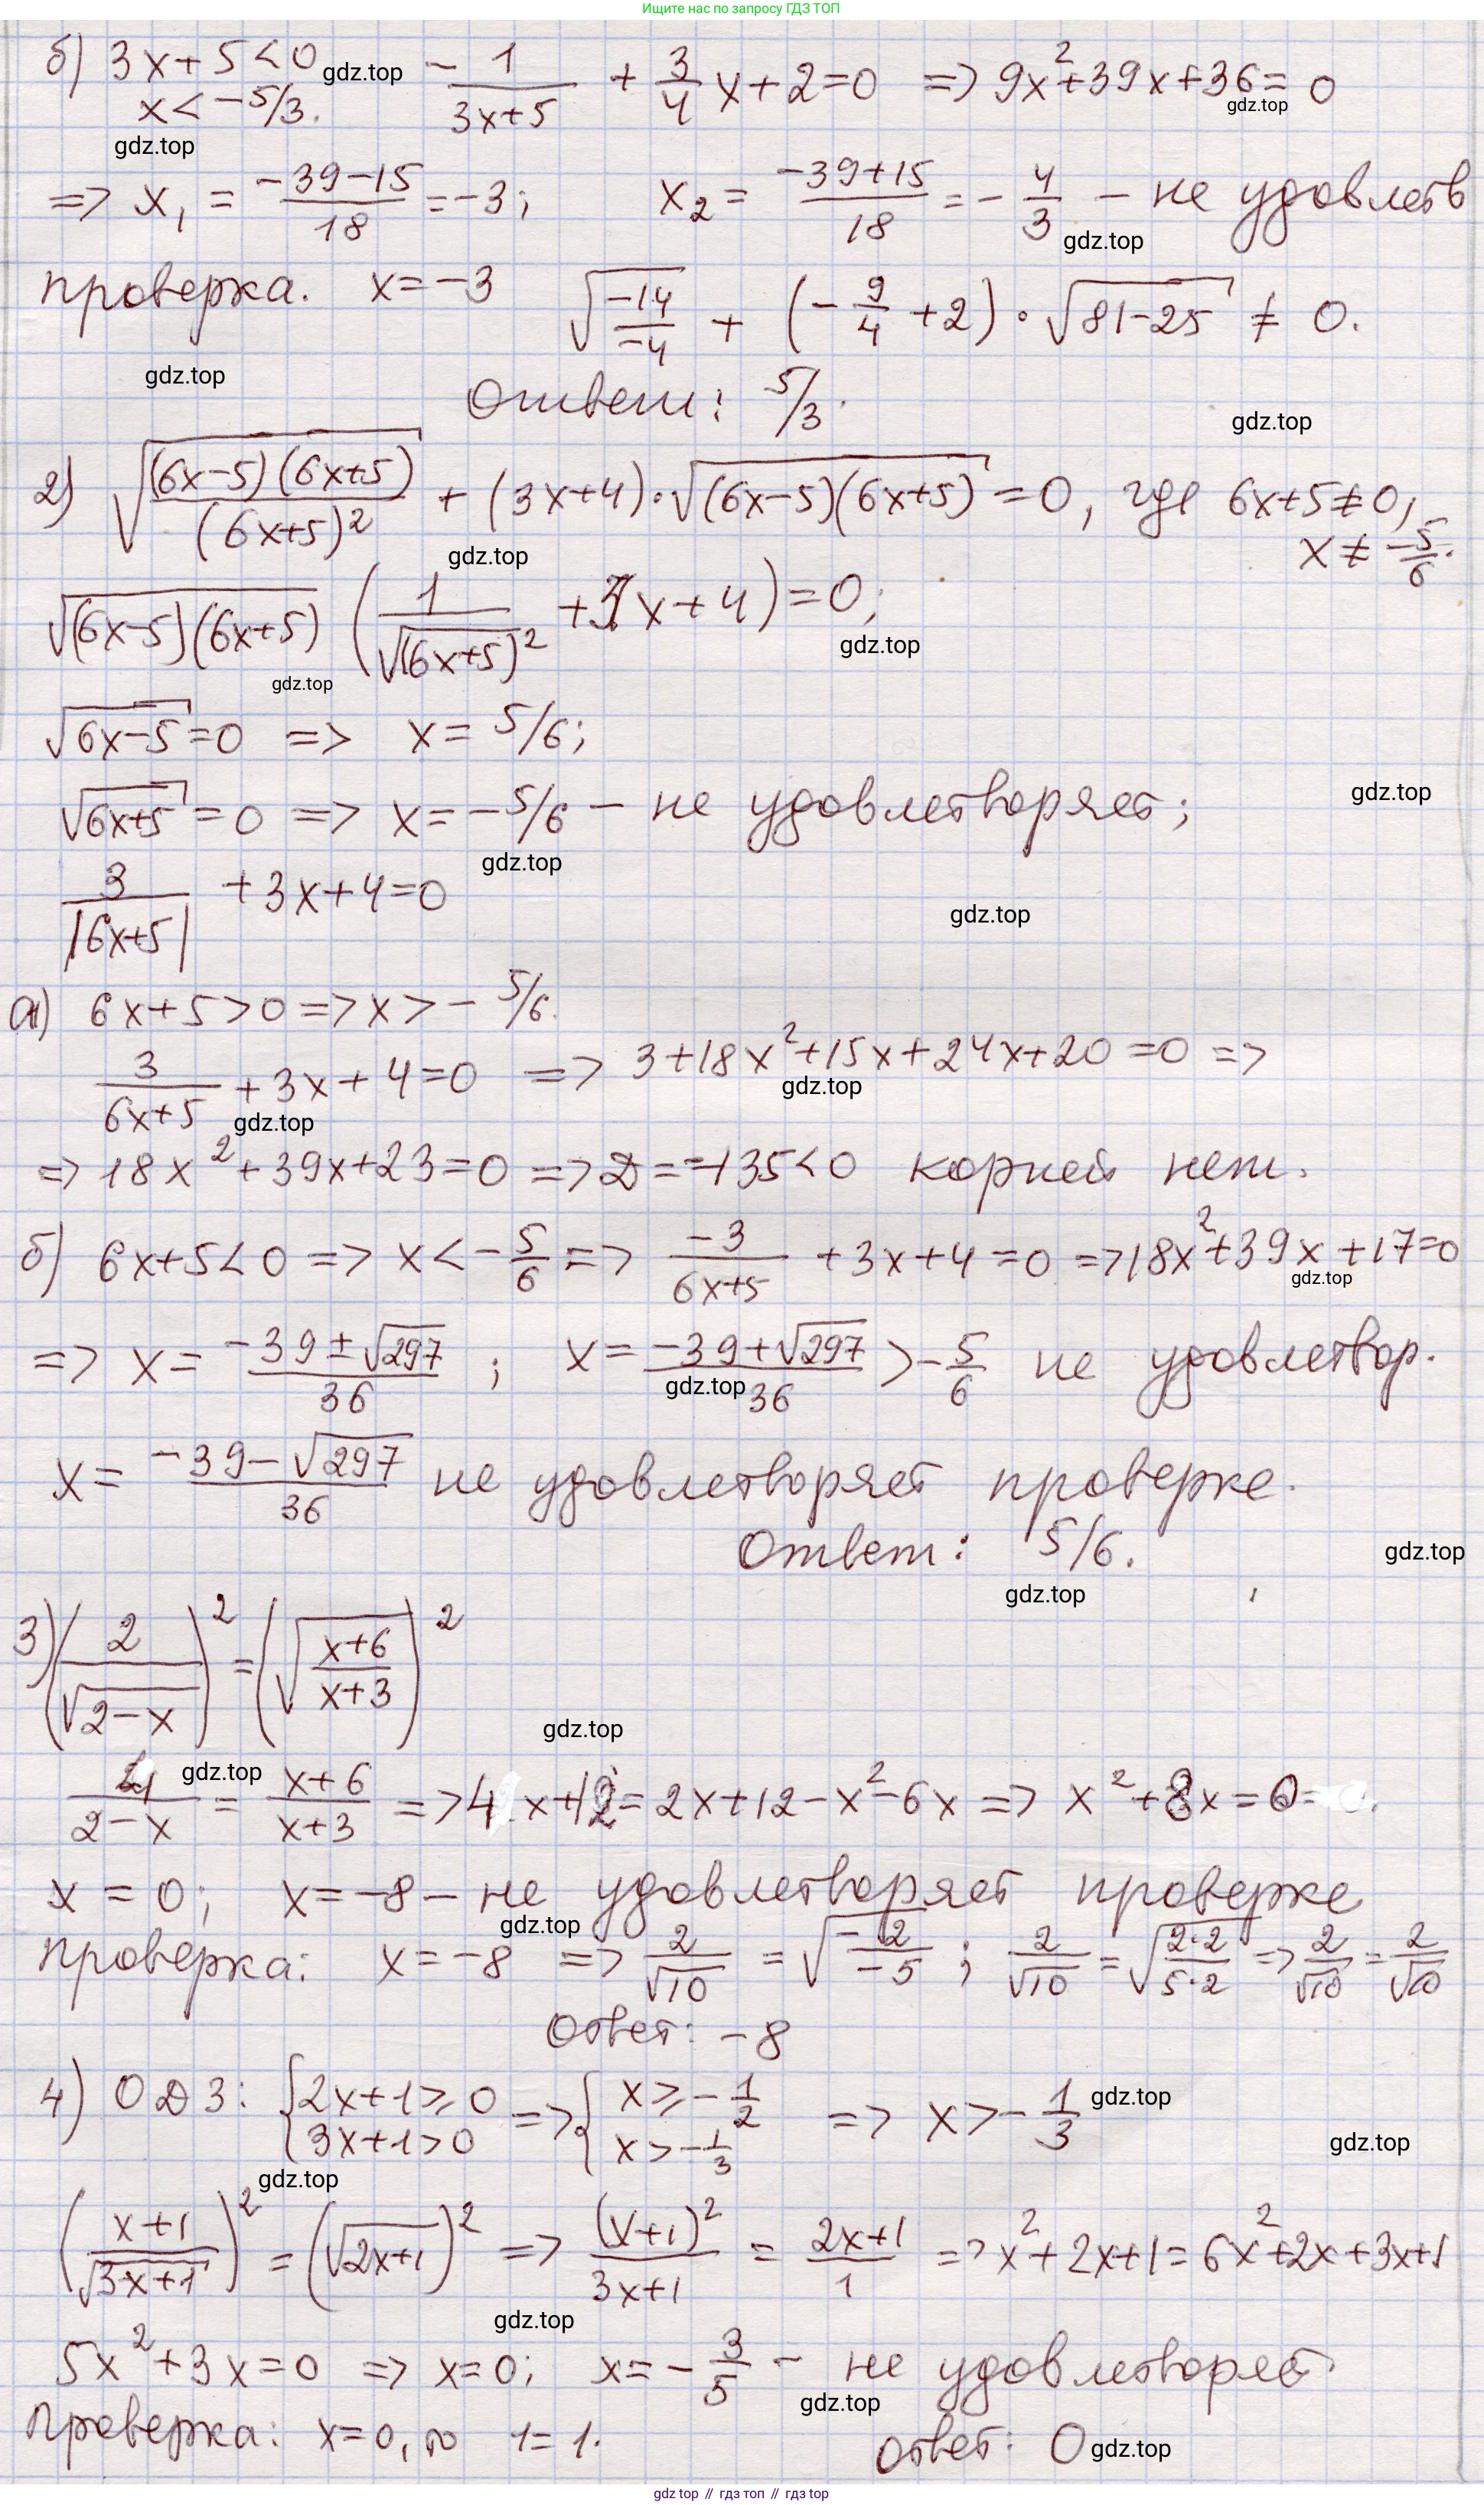 Ищите нас по запросу ГДЗ ТОП
б) 3x+5<0 gdz.top -1/(3x+5) + 3/4 x+2=0 => 9x²+39x+36=0
x<-5/3. gdz.top
gdz.top
=> x₁ = (-39-15)/18 = -3; x₂ = (-39+15)/18 = -4/3 - не удовлетв
gdz.top
проверка. x=-3 √(-14/-4) + (-9/4+2)·√(81-25) ≠ 0.
gdz.top
Ответ: 5/3.
gdz.top
2) √((6x-5)(6x+5)/(6x+5)²) + (3x+4)·√((6x-5)(6x+5)) = 0, где 6x+5≠0,
gdz.top x ≠ -5/6.
√((6x-5)(6x+5)) (1/√((6x+5)²) + 3x+4)=0;
gdz.top
gdz.top
√(6x-5)=0 => x= 5/6;
√(6x+5)=0 => x=-5/6 - не удовлетворяет; gdz.top
gdz.top
3/|6x+5| +3x+4=0
gdz.top
а) 6x+5>0 => x>-5/6.
3/(6x+5) +3x+4=0 => 3+18x²+15x+24x+20=0 =>
gdz.top
gdz.top
=> 18x²+39x+23=0 => D=-135<0 корней нет.
б) 6x+5<0 => x<-5/6 => -3/(6x+5) +3x+4=0 => 18x²+39x+17=0
gdz.top
=> x= (-39±√297)/36; x= (-39+√297)/36 > -5/6 не удовлетвор.
gdz.top
x= (-39-√297)/36 не удовлетворяет проверке.
Ответ: 5/6.
gdz.top
gdz.top
3) (2/√(2-x))² = (√((x+6)/(x+3)))²
gdz.top
4/(2-x) = (x+6)/(x+3) => 4x+12=2x+12-x²-6x => x²+8x=0
gdz.top
x=0; x=-8 - не удовлетворяет проверке
gdz.top
проверка: x=-8 => 2/√10 = √(-2/-5); 2/√10 = √(2·2/5·2) => 2/√10 = 2/√10
Ответ: -8
4) ОДЗ: {2x+1⩾0 {3x+1>0 => {x⩾-1/2 {x>-1/3 => x>-1/3 gdz.top
gdz.top
gdz.top
((x+1)/√(3x+1))² = (√(2x+1))² => (x+1)²/(3x+1) = (2x+1)/1 => x²+2x+1=6x²+2x+3x+1
gdz.top
5x²+3x=0 => x=0; x=-3/5 - не удовлетворяет.
gdz.top
Проверка: x=0, то 1=1. ответ: 0 gdz.top
gdz top // гдз топ // гдз top